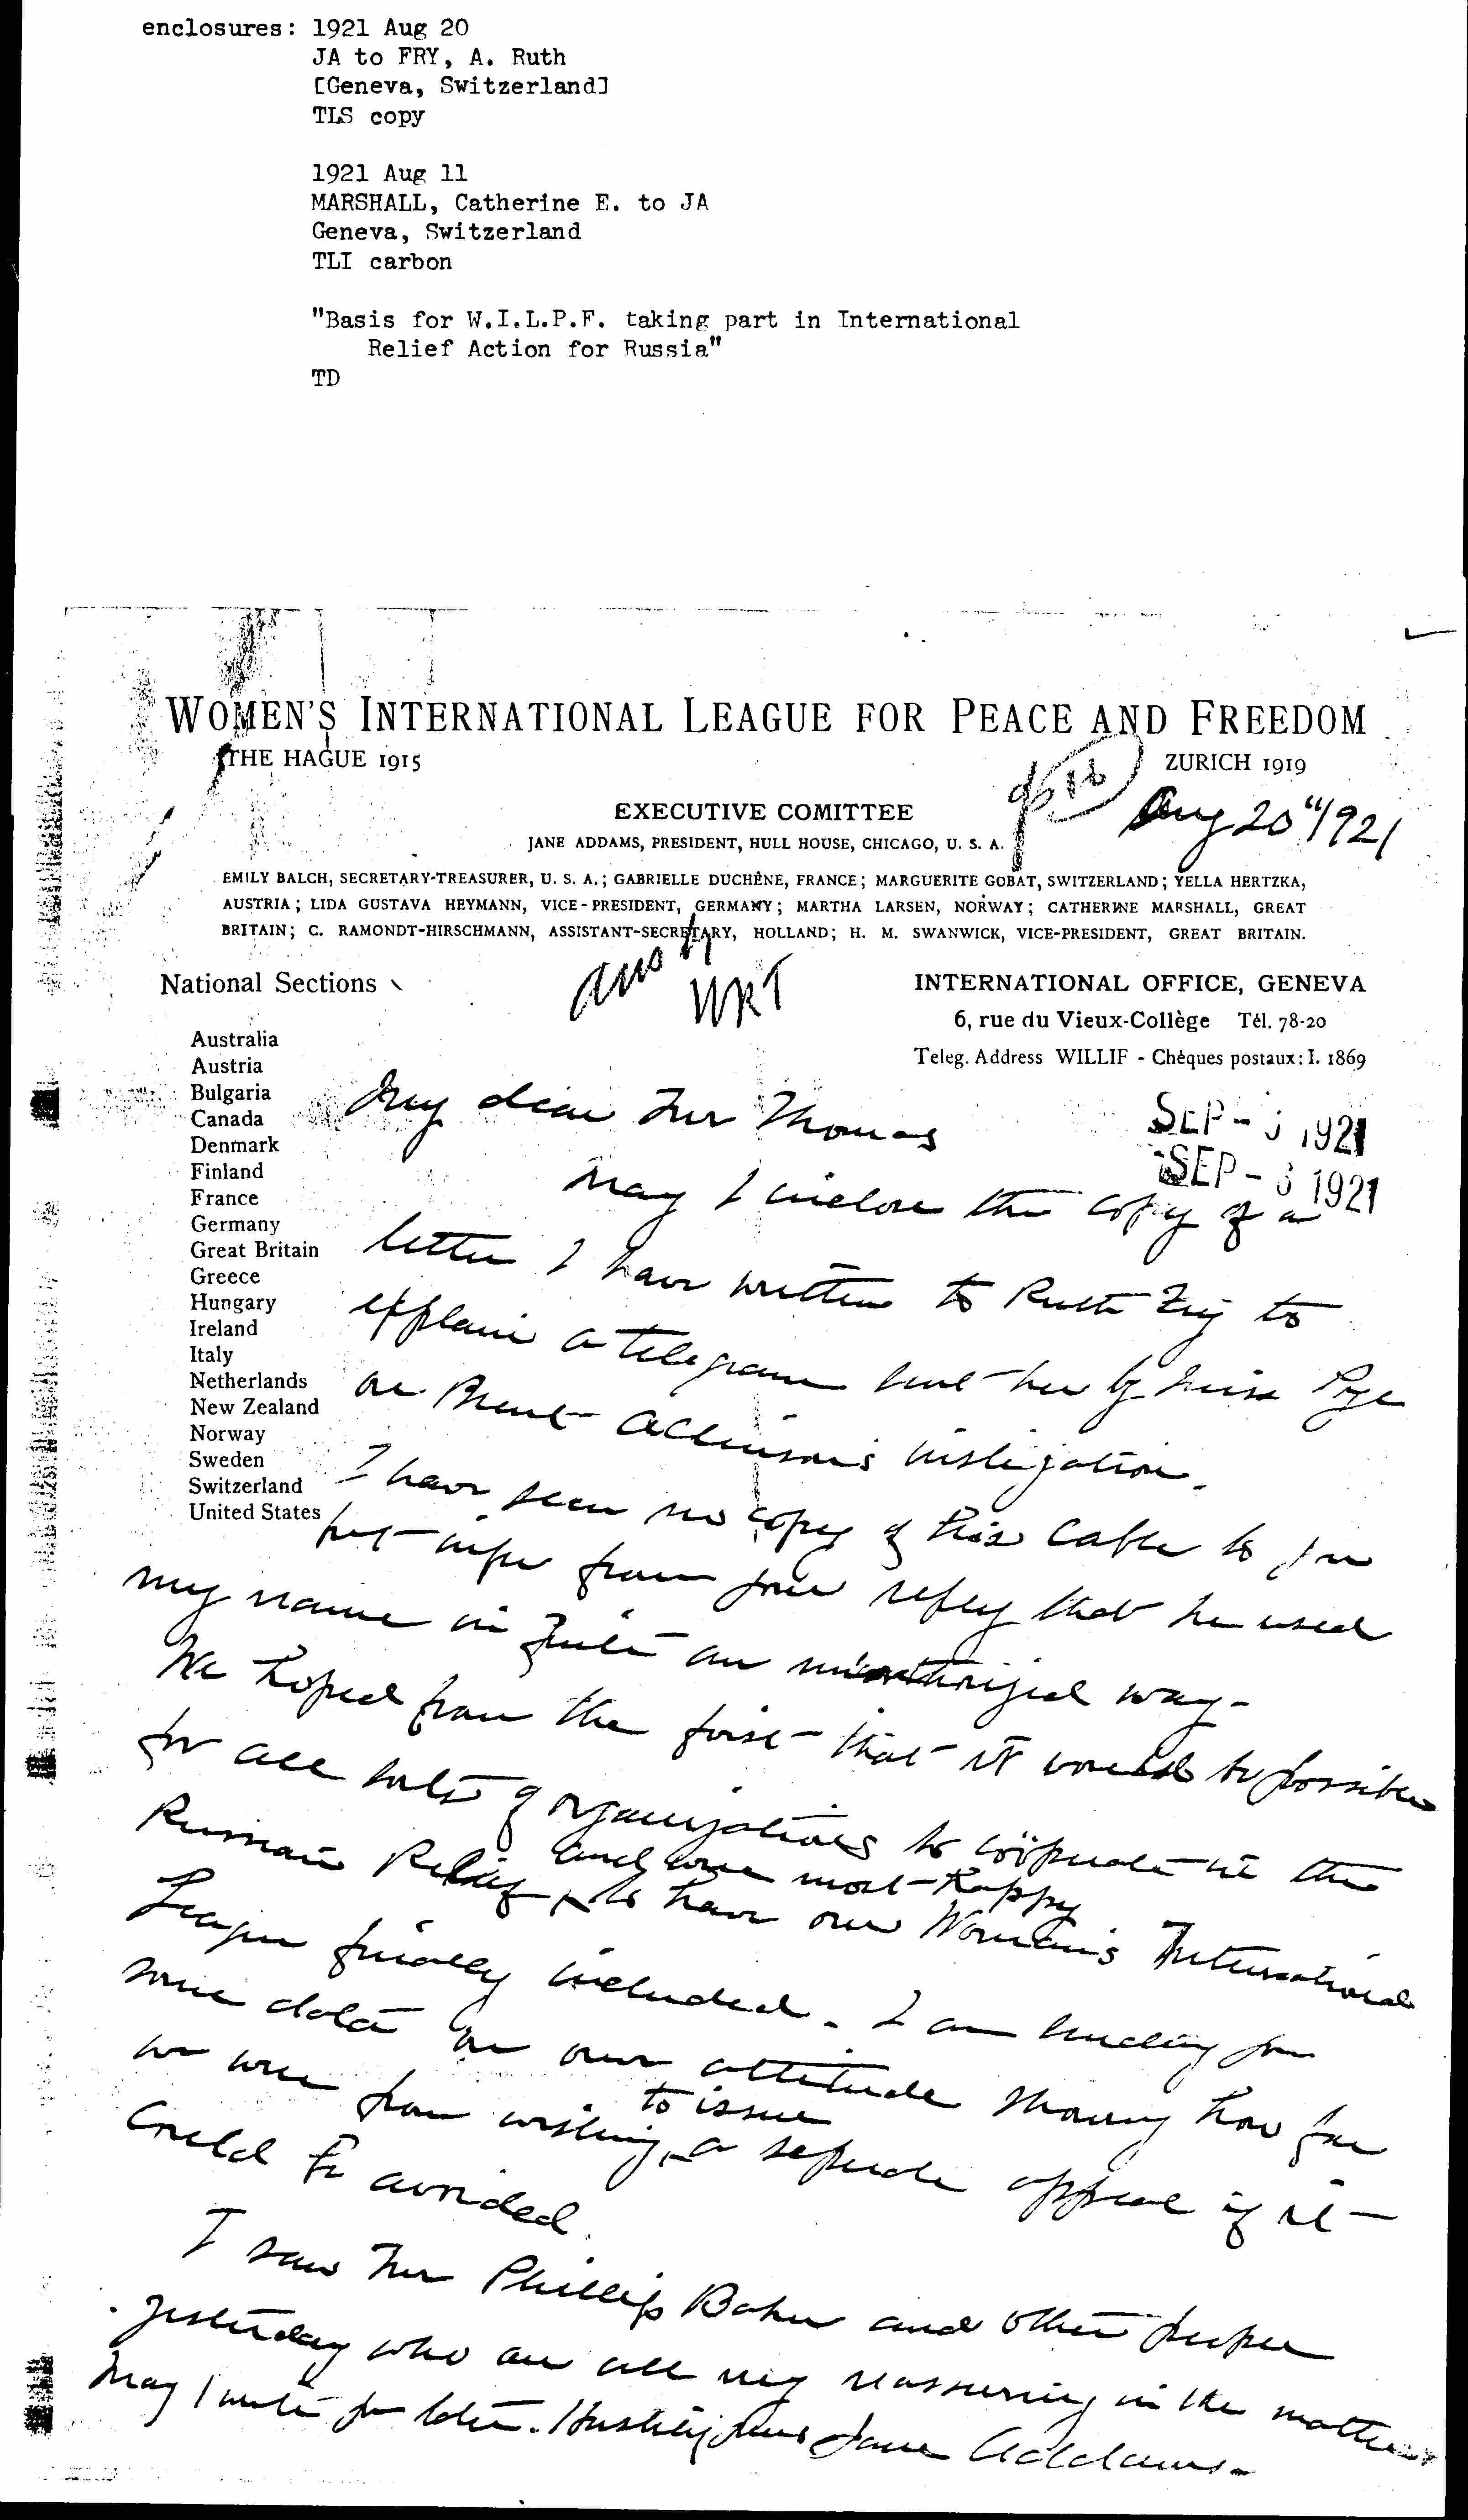 enclosures: 1921 Aug 20
JA to FRY, A. Ruth
[Geneva, Switzerland]
TLS copy
1921 Aug 11
MARSHALL, Catherine E. to JA
Geneva, Switzerland
TLI carbon
"Basis for W.I.L.P.F. taking part in International
Relief Action for Russia"
TD
WOMEN'S INTERNATIONAL LEAGUE FOR PEACE AND FREEDOM
THE HAGUE 1915
ZURICH 1919
EXECUTIVE COMITTEE
Aug 20" 1921
JANE ADDAMS, PRESIDENT, HULL HOUSE, CHICAGO, U. S. A.
EMILY BALCH, SECRETARY-TREASURER, U. S. A.; GABRIELLE DUCHÊNE, FRANCE; MARGUERITE GOBAT, SWITZERLAND; YELLA HERTZKA,
AUSTRIA; LIDA GUSTAVA HEYMANN, VICE-PRESIDENT, GERMANY; MARTHA LARSEN, NORWAY; CATHERINE MARSHALL, GREAT
BRITAIN; C. RAMONDT-HIRSCHMANN, ASSISTANT-SECRETARY, HOLLAND; H. M. SWANWICK, VICE-PRESIDENT, GREAT BRITAIN.
ans by
WKT
National Sections
INTERNATIONAL OFFICE, GENEVA
6, rue du Vieux-Collège Tél. 78-20
Teleg. Address WILLIF - Chèques postaux: I. 1869
Australia
Austria
Bulgaria
Canada
Denmark
Finland
France
Germany
Great Britain
Greece
Hungary
Ireland
Italy
Netherlands
New Zealand
Norway
Sweden
Switzerland
United States
SEP - 3 1921
SEP - 3 1921
My dear Mr Thomas
May I inclose the copy of a
letter I have written to Ruth Fry to
explain a telegram sent her by Miss Pye
on Brent Allinson's instigation.
I have seen no copy of his cable to you
but infer from your reply that he used
my name in quite an unauthorized way -
We hoped from the first that it would be possible
for all sorts of organizations to coöperate in the
Russian Relief, and were most happy
to have our Woman's International
League finally included. I am sending you
some data on our attitude showing how far
we were from wishing to issue a seperate appeal if it
could be avoided.
I saw Mr Phillip Baker and other people
yesterday who are all very reassuring in the matter
May I write you later. Hastily yours Jane Addams -